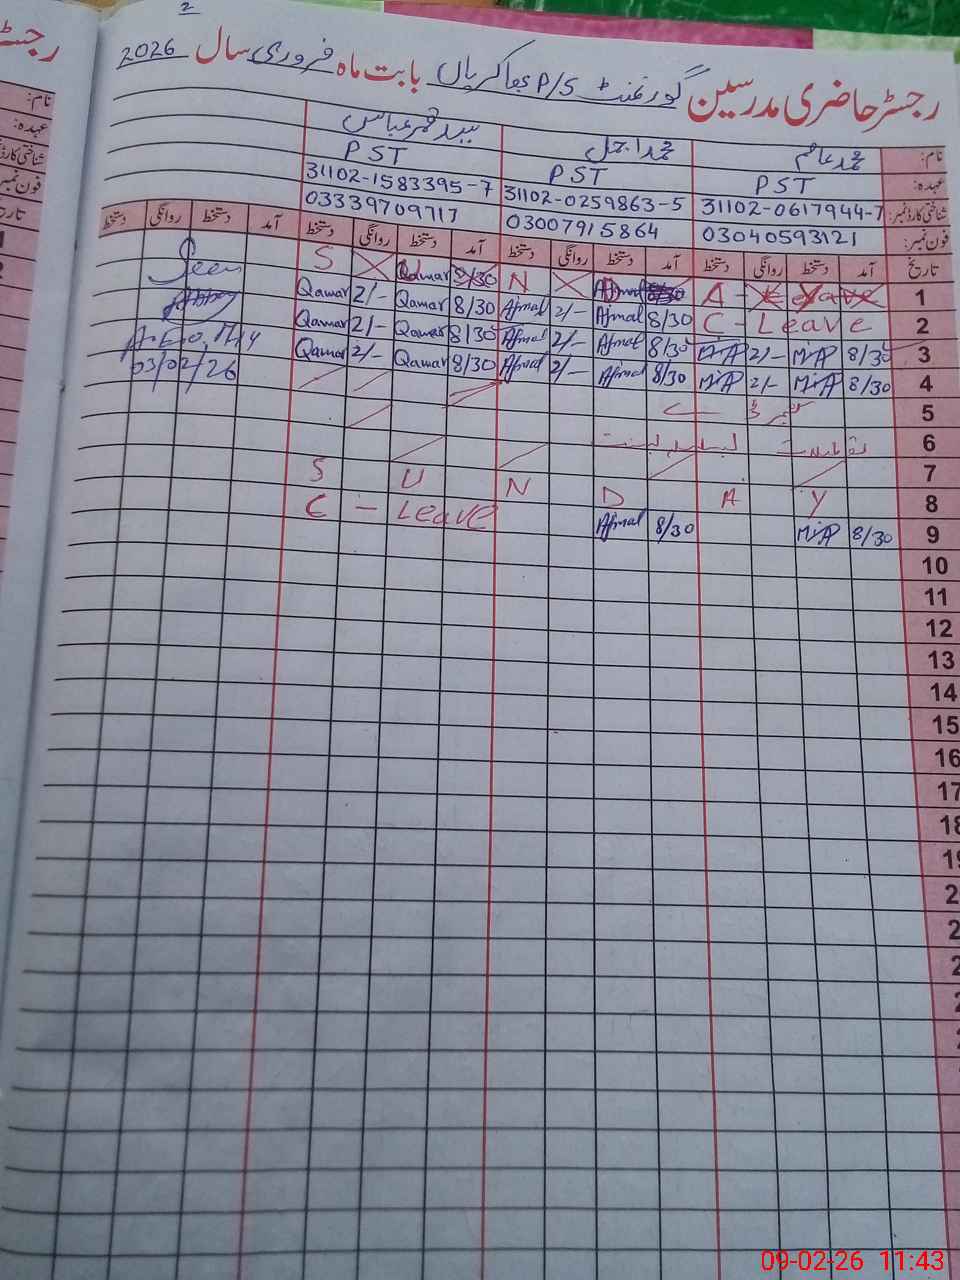 2
رجسٹر حاضری مدرسین گورنمنٹ P/S بابت ماہ فروری سال 2026
رجسٹر
نام: محمد عاصم محمد اجمل
عہدہ: PST PST PST
شناختی کارڈ نمبر: 31102-0617944-7 31102-0259863-5 31102-1583395-7
فون نمبر: 03040593121 03007915864 03339709717
تاریخ آمد دستخط روانگی دستخط آمد دستخط روانگی دستخط آمد دستخط روانگی دستخط آمد دستخط روانگی دستخط
1 S U N D A Y
2 Qamar 2/- Qamar 8/30 Afmal 2/- Afmal 8/30 C - Leave
3 Qamar 2/- Qamar 8/30 Afmal 2/- Afmal 8/30 2/- 8/30
4 Qamar 2/- Qamar 8/30 Afmal 2/- Afmal 8/30 2/- 8/30
Seen
03/02/26
5
6
7
8 S U N D A Y
9 C - Leave Afmal 8/30 8/30
10
11
12
13
14
15
16
17
18
نام:
عہدہ:
شناختی کارڈ
فون نمبر
تاریخ
09-02-26 11:43